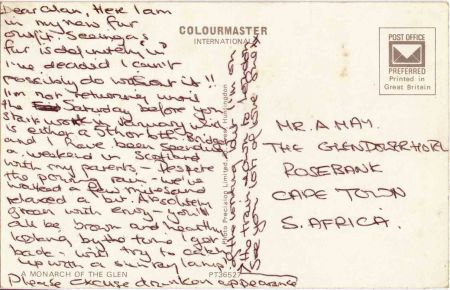 Dear Alan, Here I am
in my new fur
outfit. Seeing as
fur is definitely "in"
I've decided I can't
possibly do without it!!
I'm not returning until
the Saturday before you
start work & January which
is either a 5th or 6th. Bridget
and I have been spending
a weekend in Scotland
with my parents - Despite
the pouring rain we've
walked a few miles and
relaxed a bit. Absolutely
green with envy - you'll
all be brown and healthy
looking by the time I get
back - will try to catch
up with a sunray lamp!
Please excuse drunken appearance
on the train
See you lots of love
COLOURMASTER
INTERNATIONAL
POST OFFICE
PREFERRED
Printed in
Great Britain
MR. A MAY.
THE GLENDOWER HOTEL
ROSEBANK
CAPE TOWN
S. AFRICA.
Photo Precision Limited, Huntingdon
A MONARCH OF THE GLEN
PT3652